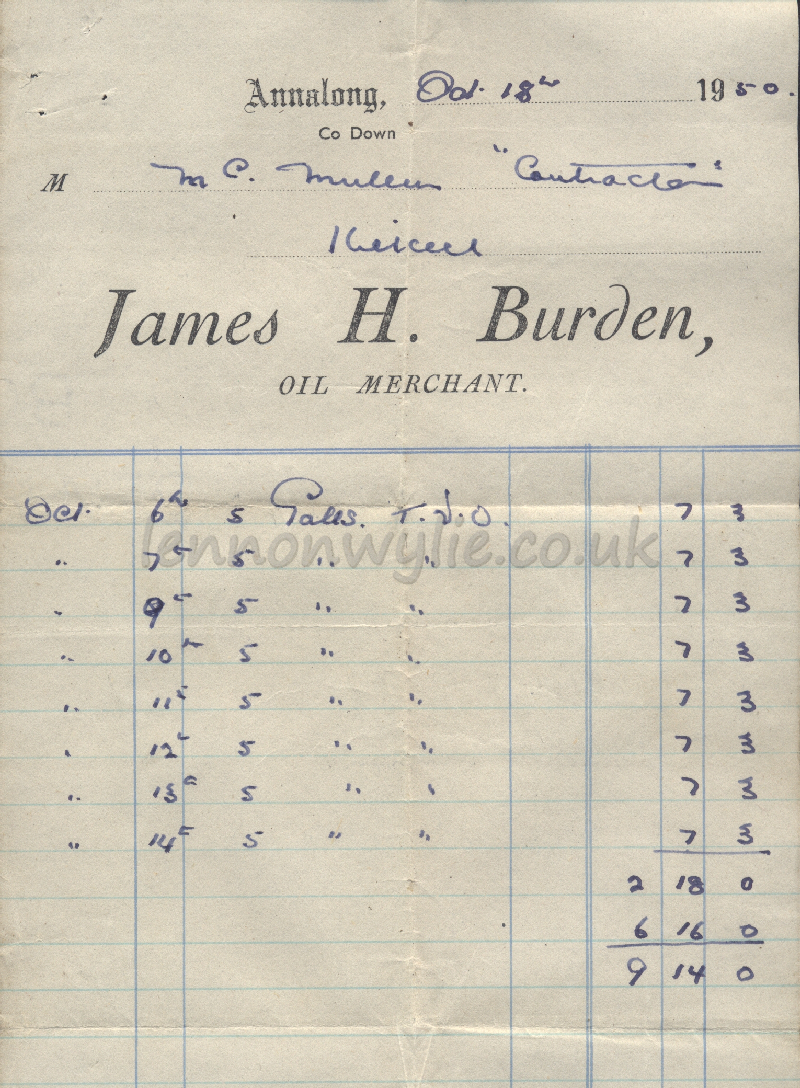 Annalong, Oct. 18th 1950.
Co Down
M Mc. Mullen "Contractor"
Kilkeel
James H. Burden,
OIL MERCHANT.
Oct. 6th 5 Galls. T.V.O. 7 3
lennonwylie.co.uk
" 7th 5 " " 7 3
" 9th 5 " " 7 3
" 10th 5 " " 7 3
" 11th 5 " " 7 3
" 12th 5 " " 7 3
" 13th 5 " " 7 3
" 14th 5 " " 7 3
2 18 0
6 16 0
9 14 0